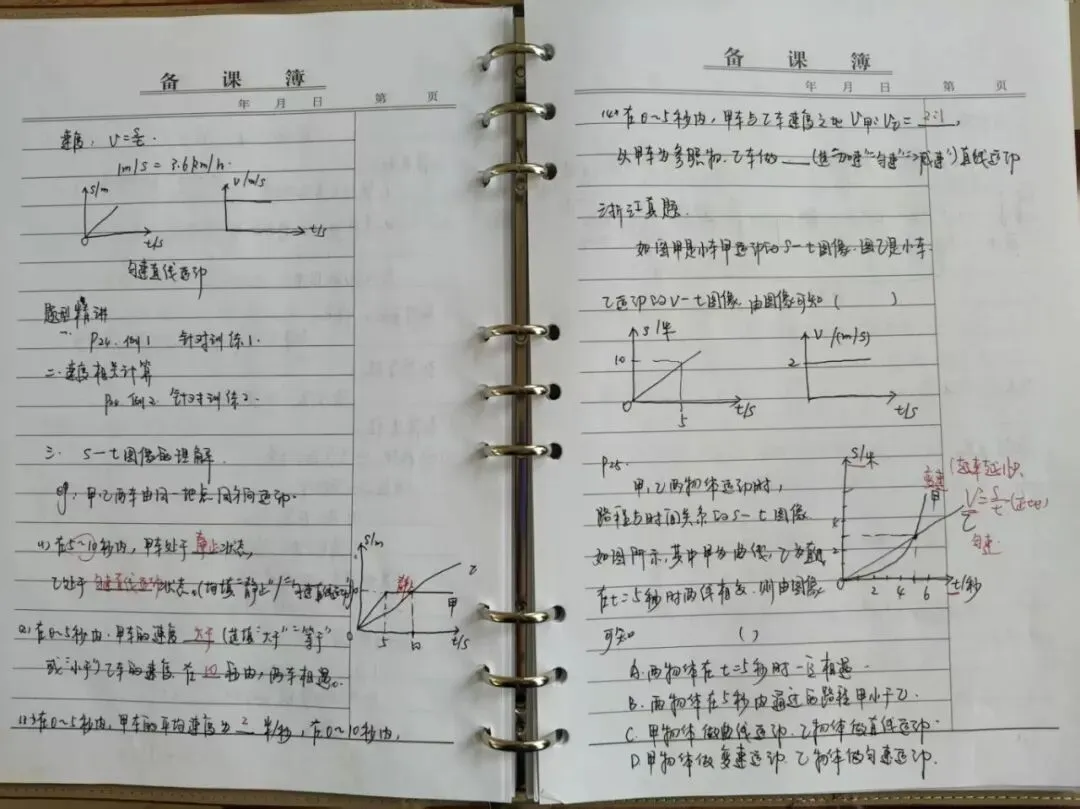 备 课 簿
年 月 日 第 页
速度：V=s/t
1m/s = 3.6km/h.
s/m
v/m/s
0 t/s
t/s
匀速直线运动
题型精讲
一. P24. 例1 针对训练1.
二. 速度相关计算
例2 针对训练2.
三. s-t图像的理解.
例. 甲.乙两车由同一地点.同方向运动.
(1) 在5~10秒内，甲车处于静止状态，
乙处于匀速直线运动状态。(均填"静止"/"匀速直线运动")
s/m
乙
甲
0 5 10 t/s
(2) 在0~5秒内，甲车的速度 大于 (选填"大于""等于"
或"小于")乙车的速度. 在10秒内，两车相遇。
(3) 在0~5秒内，甲车的平均速度为 2 米/秒，在0~10秒内，
备 课 簿
年 月 日 第 页
(4) 在0~5秒内，甲车与乙车速度之比 V甲:V乙= 2:1 ，
以甲车为参照物，乙车做 (选"加速""匀速""减速")直线运动
三. 浙江真题.
如图甲是小车甲运动的s-t图像. 图乙是小车
乙运动的v-t图像. 由图像可知 ( )
s/米
10
0 5 t/s
v/(m/s)
2
0 t/s
P25.
甲.乙两物体运动时，
路程与时间关系的s-t图像
如图所示，其中甲为曲线，乙为直线
在t=5秒时两线有交. 则由图像
可知 ( )
s/米
变速
甲
乙
V=s/t
匀速
0 2 4 6 t/秒
A. 两物体在t=5秒时一定相遇.
B. 两物体在5秒内通过的路程甲小于乙.
C. 甲物体做曲线运动. 乙物体做直线运动.
D. 甲物体做变速运动. 乙物体做匀速运动.